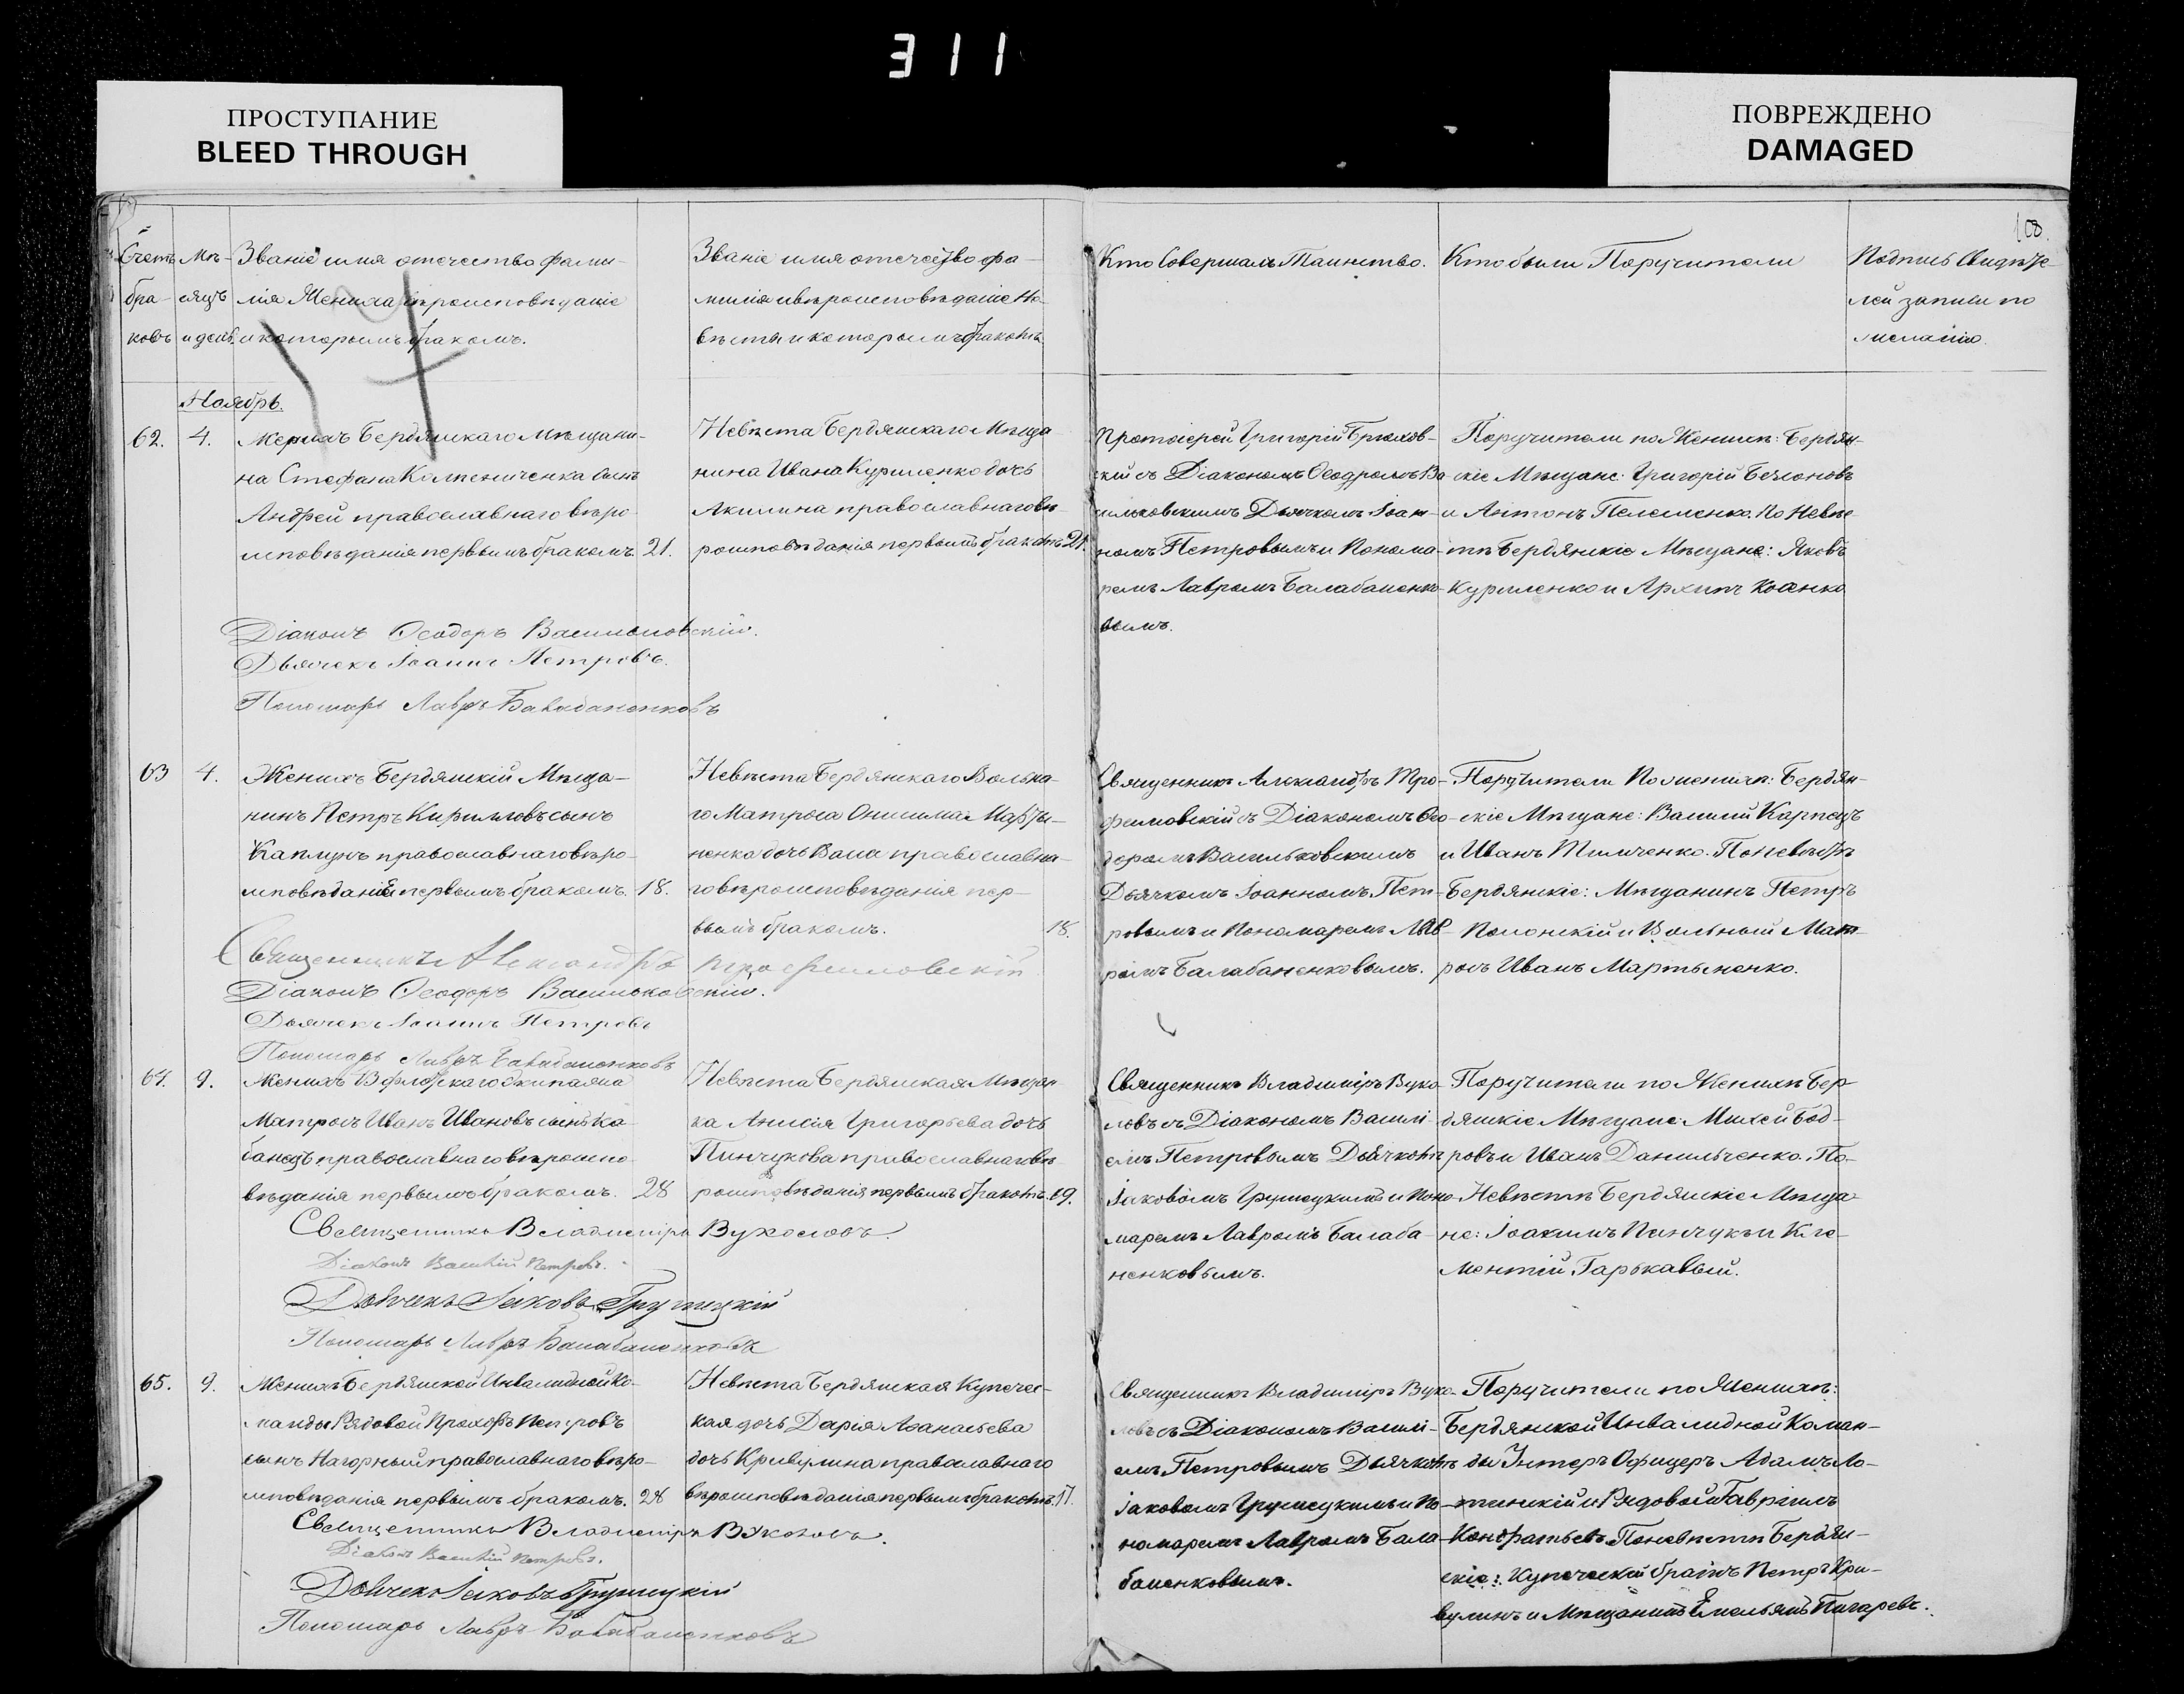 311
ПРОСТУПАНИЕ
BLEED THROUGH
ПОВРЕЖДЕНО
DAMAGED
108.
Счетъ
бра-
ковъ
Мѣ-
сяцъ
и день.
Званіе имя отечество фами-
лія Жениха вѣроисповѣданіе
и которымъ бракомъ.
Званіе имя отечество фа-
милія и вѣроисповѣданіе Не-
вѣсты и которымъ бракомъ
Кто Совершалъ Таинство.
Кто были Поручители
Подпись Свидѣте-
лей записи по
желанію.
Ноябрь.
62. 4.
Женихъ Бердянскаго Мѣщани-
на Стефана сынъ
Андрей православнаго вѣро
исповѣданія первымъ бракомъ. 21.
Невѣста Бердянскаго Мѣща
нина Ивана Куриленко дочь
Акилина православнаго вѣ-
роисповѣданія первымъ бракомъ 21.
Протоіерей Григорій
кій съ Діакономъ Ѳеодоромъ Ва
сильковскимъ Дьячкомъ Іоан-
номъ Петровымъ и Понома-
ремъ Лавромъ Балабаненко-
вымъ.
Поручители по Женихѣ: Бердян-
скіе Мѣщане: Григорій
и Антонъ По Невѣс-
тѣ Бердянскіе Мѣщане: Яковъ
Куриленко и Архипъ
Діаконъ Ѳеодоръ Васильковскій.
Дьячекъ Іоаннъ Петровъ.
Пономарь Лавръ Балабаненковъ
63 4.
Женихъ Бердянскій Мѣща-
нинъ Петръ Кирилловъ сынъ
Каплунъ православнаго вѣро-
исповѣданія первымъ бракомъ. 18.
Невѣста Бердянскаго Вольна-
го Матроса Онисима Марты-
ненка дочь православна-
го вѣроисповѣданія пер-
вымъ бракомъ. 18.
Священникъ Александръ Тро-
фимовскій съ Діакономъ Ѳео-
доромъ Васильковскимъ
Дьячкомъ Іоанномъ Пет-
ровымъ и Пономаремъ Лав-
ромъ Балабаненковымъ.
Поручители По женихѣ: Бердян-
скіе Мѣщане: Василій Карпецъ
и Иванъ Тимченко. По невѣстѣ
Бердянскіе: Мѣщанинъ Петръ
Полонскій и Вольный Мат-
росъ Иванъ Мартыненко.
Священникъ Александръ Трофимовскій
Діаконъ Ѳеодоръ Васильковскій.
Дьячекъ Іоаннъ Петровъ
Пономарь Лавръ Балабаненковъ
64. 9.
Женихъ В экипажа
Матросъ Иванъ Ивановъ сынъ Ка-
банецъ православнаго вѣроиспо-
вѣданія первымъ бракомъ. 28
Невѣста Бердянская Мѣщан-
ка Анисія Григорьева дочь
Пинчукова православнаго вѣ-
роисповѣданія первымъ бракомъ. 19.
Священникъ Владиміръ Вуко-
ловъ съ Діакономъ Василі-
емъ Петровымъ Дьячкомъ
Іаковомъ Грушецкимъ и Поно-
маремъ Лавромъ Балаба-
ненковымъ.
Поручители по Женихѣ Бер-
дянскіе Мѣщане: Михей Бод-
ровъ и Иванъ Данильченко. По-
Невѣстѣ Бердянскіе Мѣща-
не: Іоакимъ Пинчукъ и Кле-
ментій Гарькавый.
Священникъ Владиміръ Вуколовъ.
Діаконъ Василій Петровъ.
Дьячекъ Іаковъ Грушецкій
Пономарь Лавръ Балабаненковъ
65. 9.
Женихъ Бердянской Инвалидной Ко-
манды Рядовой Прохоръ Петровъ
сынъ Нагорный православнаго вѣро-
исповѣданія первымъ бракомъ. 28
Невѣста Бердянская Купечес-
кая дочь Дарія Аѳанасьева
дочь Кривулина православнаго
вѣроисповѣданія первымъ бракомъ. 17.
Священникъ Владиміръ Вуко-
ловъ съ Діакономъ Василі-
емъ Петровымъ Дьячкомъ
Іаковомъ Грушецкимъ и По-
номаремъ Лавромъ Бала-
баненковымъ.
Поручители по Женихѣ:
Бердянской Инвалидной Коман-
ды Унтеръ Офицеръ Адамъ Ло-
тинскій и Рядовой Гавріилъ
Кондратьевъ По невѣстѣ Бердян-
скіе: Купеческій братъ Петръ Кри-
вулинъ и Мѣщанинъ Емельянъ Пигаревъ.
Священникъ Владиміръ Вуколовъ.
Діаконъ Василій Петровъ.
Дьячекъ Іаковъ Грушецкій
Пономарь Лавръ Балабаненковъ